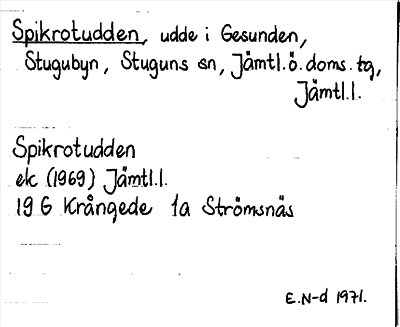 Spikrotudden, udde i Gesunden,
Stugubyn, Stuguns sn, Jämtl.ö.doms.tg,
Jämtl.l.
Spikrotudden
ek (1969) Jämtl.l.
19 G Krångede 1a Strömsnäs
E.N-d 1971.